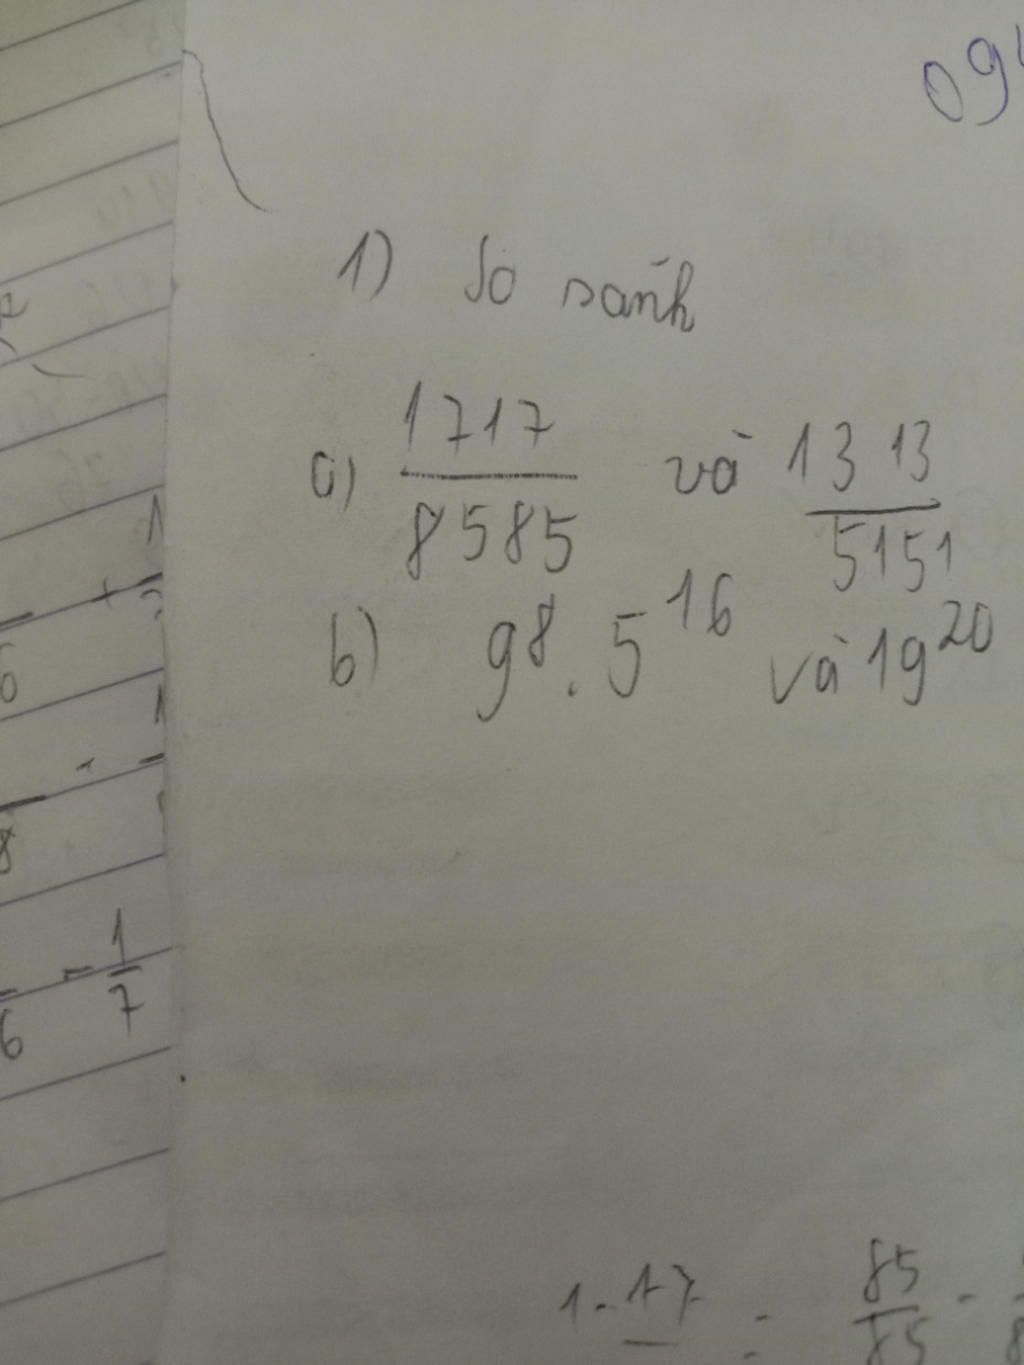 09
1) So sánh
a) 1717/8585 và 1313/5151
b) 9^8 . 5^16 và 19^20
- 1/7
6
1 - 17 = 85/85 -